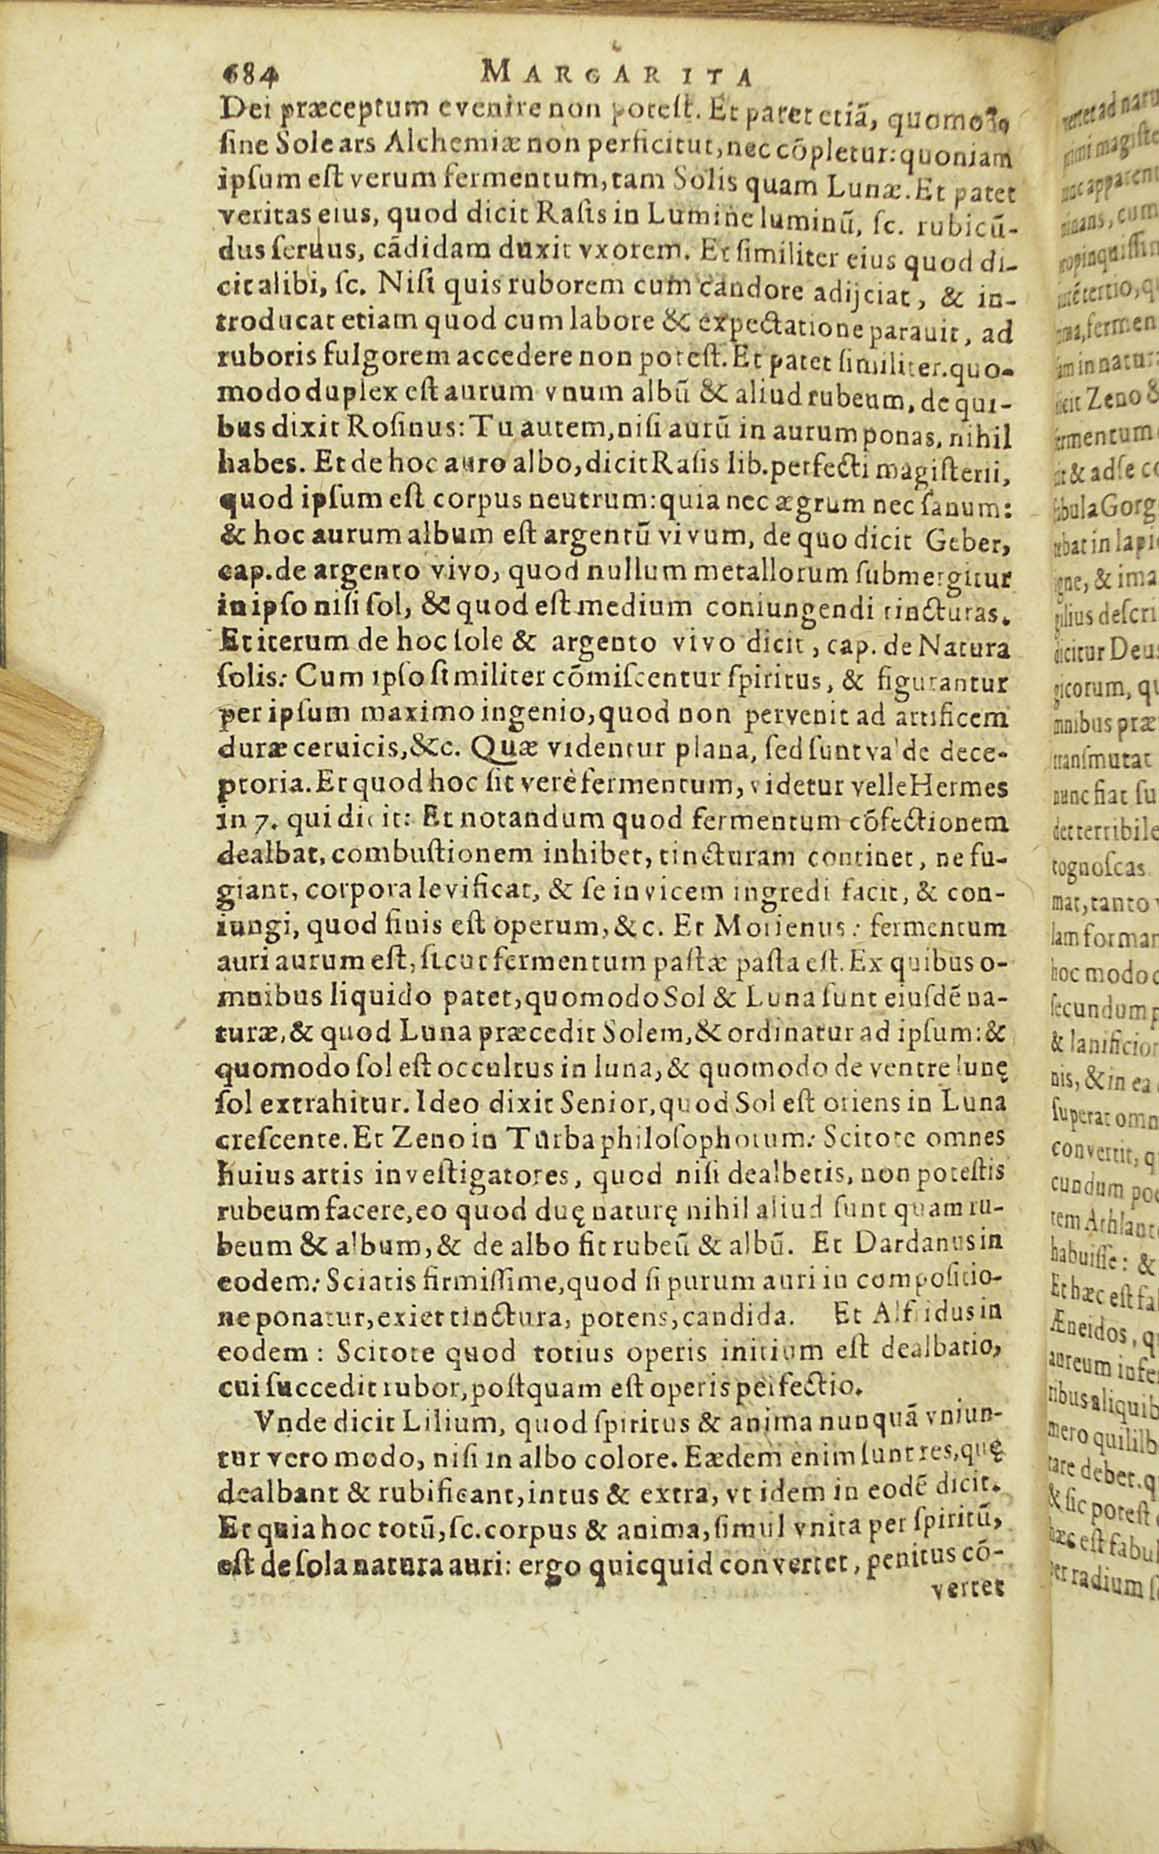 684 MARGARITA
Dei præceptum evenire non potest. Et patet etiã, quomodo
sine Sole ars Alchemiæ non perficitur, nec cõpletur: quoniam
ipsum est verum fermentum, tam Solis quam Lunæ. Et patet
veritas eius, quod dicit Rasis in Lumine luminũ, sc. rubicũ-
dus seruus, cãdidam duxit vxorem. Et similiter eius quod di-
cit alibi, sc. Nisi quis ruborem cum candore adijciat, & in-
troducat etiam quod cum labore & expectatione parauit, ad
ruboris fulgorem accedere non potest. Et patet similiter. quo-
modo duplex est aurum vnum albũ & aliud rubeum, de qui-
bus dixit Rosinus: Tu autem, nisi aurũ in aurum ponas, nihil
habes. Et de hoc auro albo, dicit Rasis lib. perfecti magisterii,
quod ipsum est corpus neutrum: quia nec ægrum nec sanum:
& hoc aurum album est argentũ vivum, de quo dicit Geber,
cap. de argento vivo, quod nullum metallorum submergitur
in ipso nisi sol, & quod est medium coniungendi tincturas.
Et iterum de hoc sole & argento vivo dicit, cap. de Natura
solis: Cum ipso similiter cõmiscentur spiritus, & figurantur
per ipsum maximo ingenio, quod non pervenit ad artificem
duræ ceruicis, &c. Quæ videntur plana, sed sunt valde dece-
ptoria. Et quod hoc sit verè fermentum, videtur velle Hermes
in 7. qui dicit: Et notandum quod fermentum cõfectionem
dealbat, combustionem inhibet, tincturam continet, ne fu-
giant, corpora levificat, & se invicem ingredi facit, & con-
iungi, quod finis est operum, &c. Et Morienus: fermentum
auri aurum est, sicut fermentum pastæ pasta est. Ex quibus o-
mnibus liquido patet, quomodo Sol & Luna sunt eiusdẽ na-
turæ, & quod Luna præcedit Solem, & ordinatur ad ipsum: &
quomodo sol est occultus in luna, & quomodo de ventre lunę
sol extrahitur. Ideo dixit Senior, quod Sol est oriens in Luna
crescente. Et Zeno in Turba philosophorum: Scitote omnes
huius artis investigatores, quod nisi dealbetis, non potestis
rubeum facere, eo quod duę naturę nihil aliud sunt quam ru-
beum & album, & de albo fit rubeũ & albũ. Et Dardanus in
eodem: Sciatis firmissime, quod si purum auri in compositio-
ne ponatur, exiet tinctura, potens, candida. Et Alfidus in
eodem: Scitote quod totius operis initium est dealbatio,
cui succedit rubor, postquam est operis perfectio.
Vnde dicit Lilium, quod spiritus & anima nunquã vniun-
tur vero modo, nisi in albo colore. Eædem enim sunt res, quę
dealbant & rubificant, intus & extra, vt idem in eodẽ dicit.
Et quia hoc totũ, sc. corpus & anima, simul vnita per spiritũ,
est de sola natura auri: ergo quicquid convertet, penitus cõ-
vertet